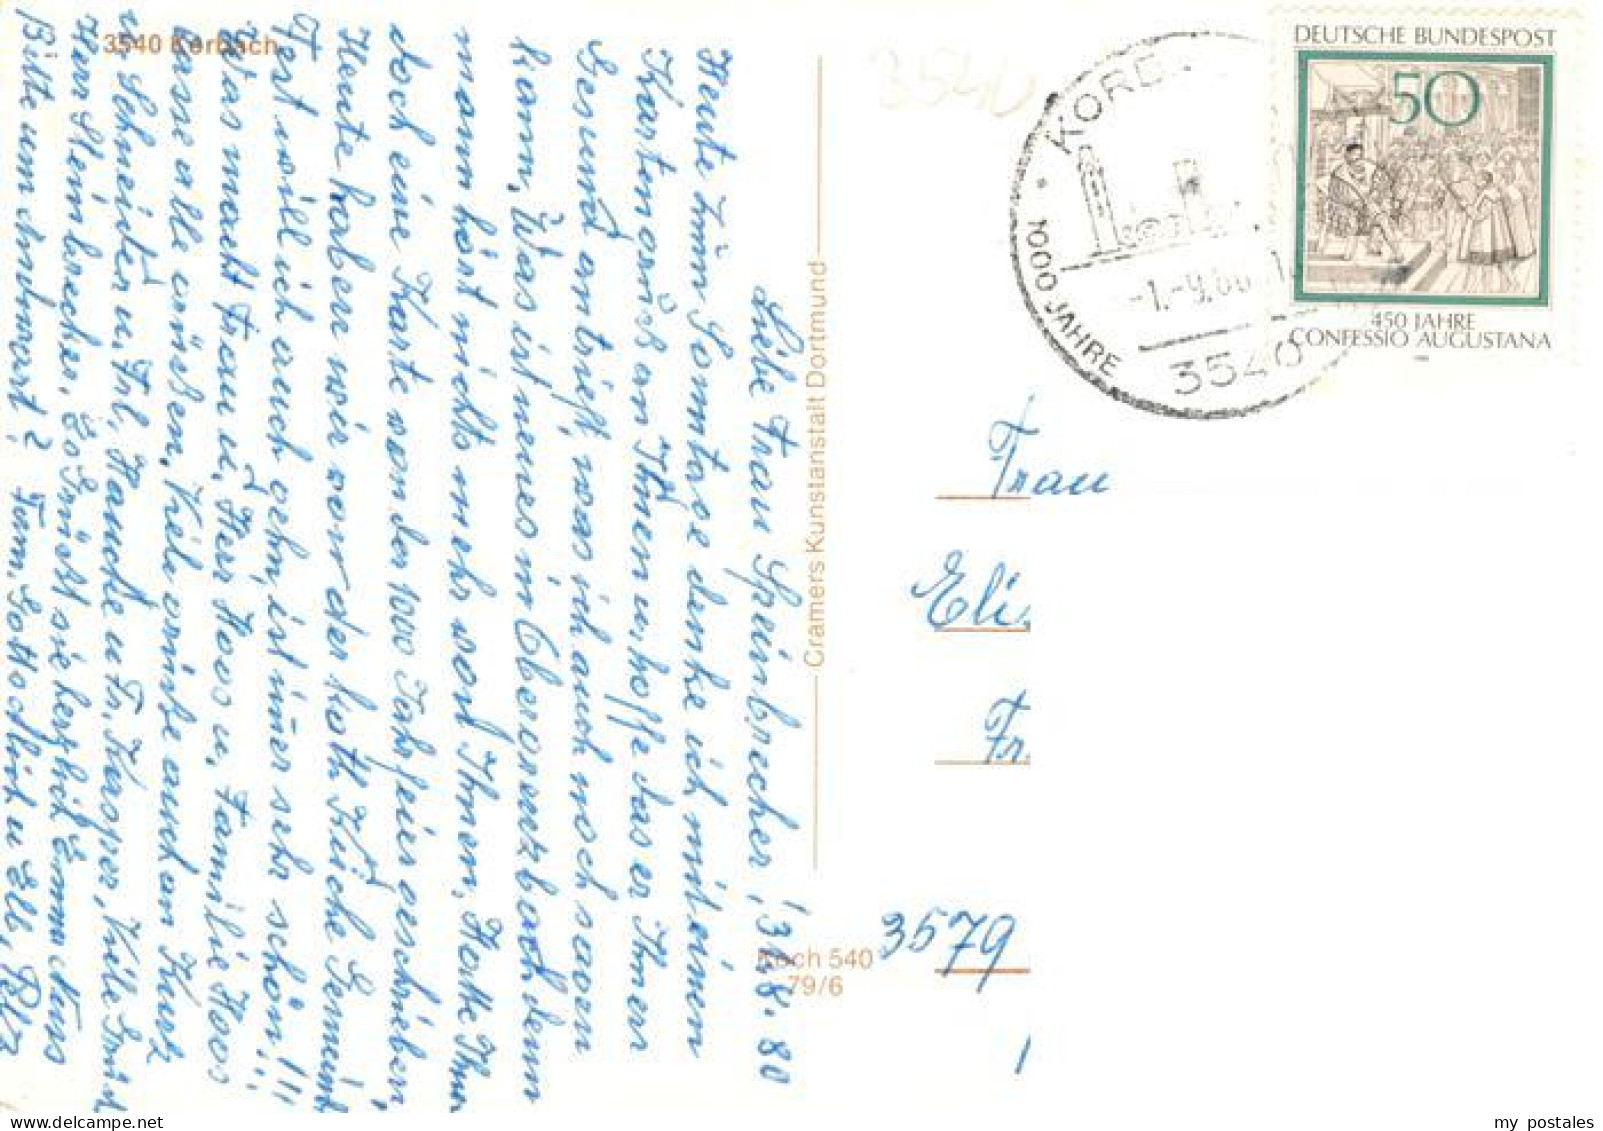 3540 Korbach
Liebe Frau Steinbrecher, 31.8.80
Heute zum Sonntage denke ich mit einen
Kartengruß an Ihnen u. hoffe das er Ihnen
Gesund antrieft, was ich auch noch sagen
kann, Was ist neues in Obergrenzbach denn
mann hört nichts mehr von Ihnen, Hatte Ihnen
doch eine Karte von der 1000 Jahrfeier geschrieben,
Heute haben wir von der
Fert will ich auch gehn, ist immer sehr schön!!!
Was macht Frau u. Herr Hoos u. Familie Hoos
lasse alle grüßen, Viele grüße auch an Kurz
u. Schneider u. Frl. u. Fr. Viele Grüße
Herr Steinbrecher. Es Grüßt sie herzlich Emma
Bitte um Andwort? Fam. Gottschick u. Elb, Pelz
Cramers Kunstanstalt Dortmund
Koch 540
79/6
3540
KORB
1000 JAHRE
-1.-9.80
3540
DEUTSCHE BUNDESPOST
50
450 JAHRE
CONFESSIO AUGUSTANA
Frau
Eli
Fr.
3579
my postales